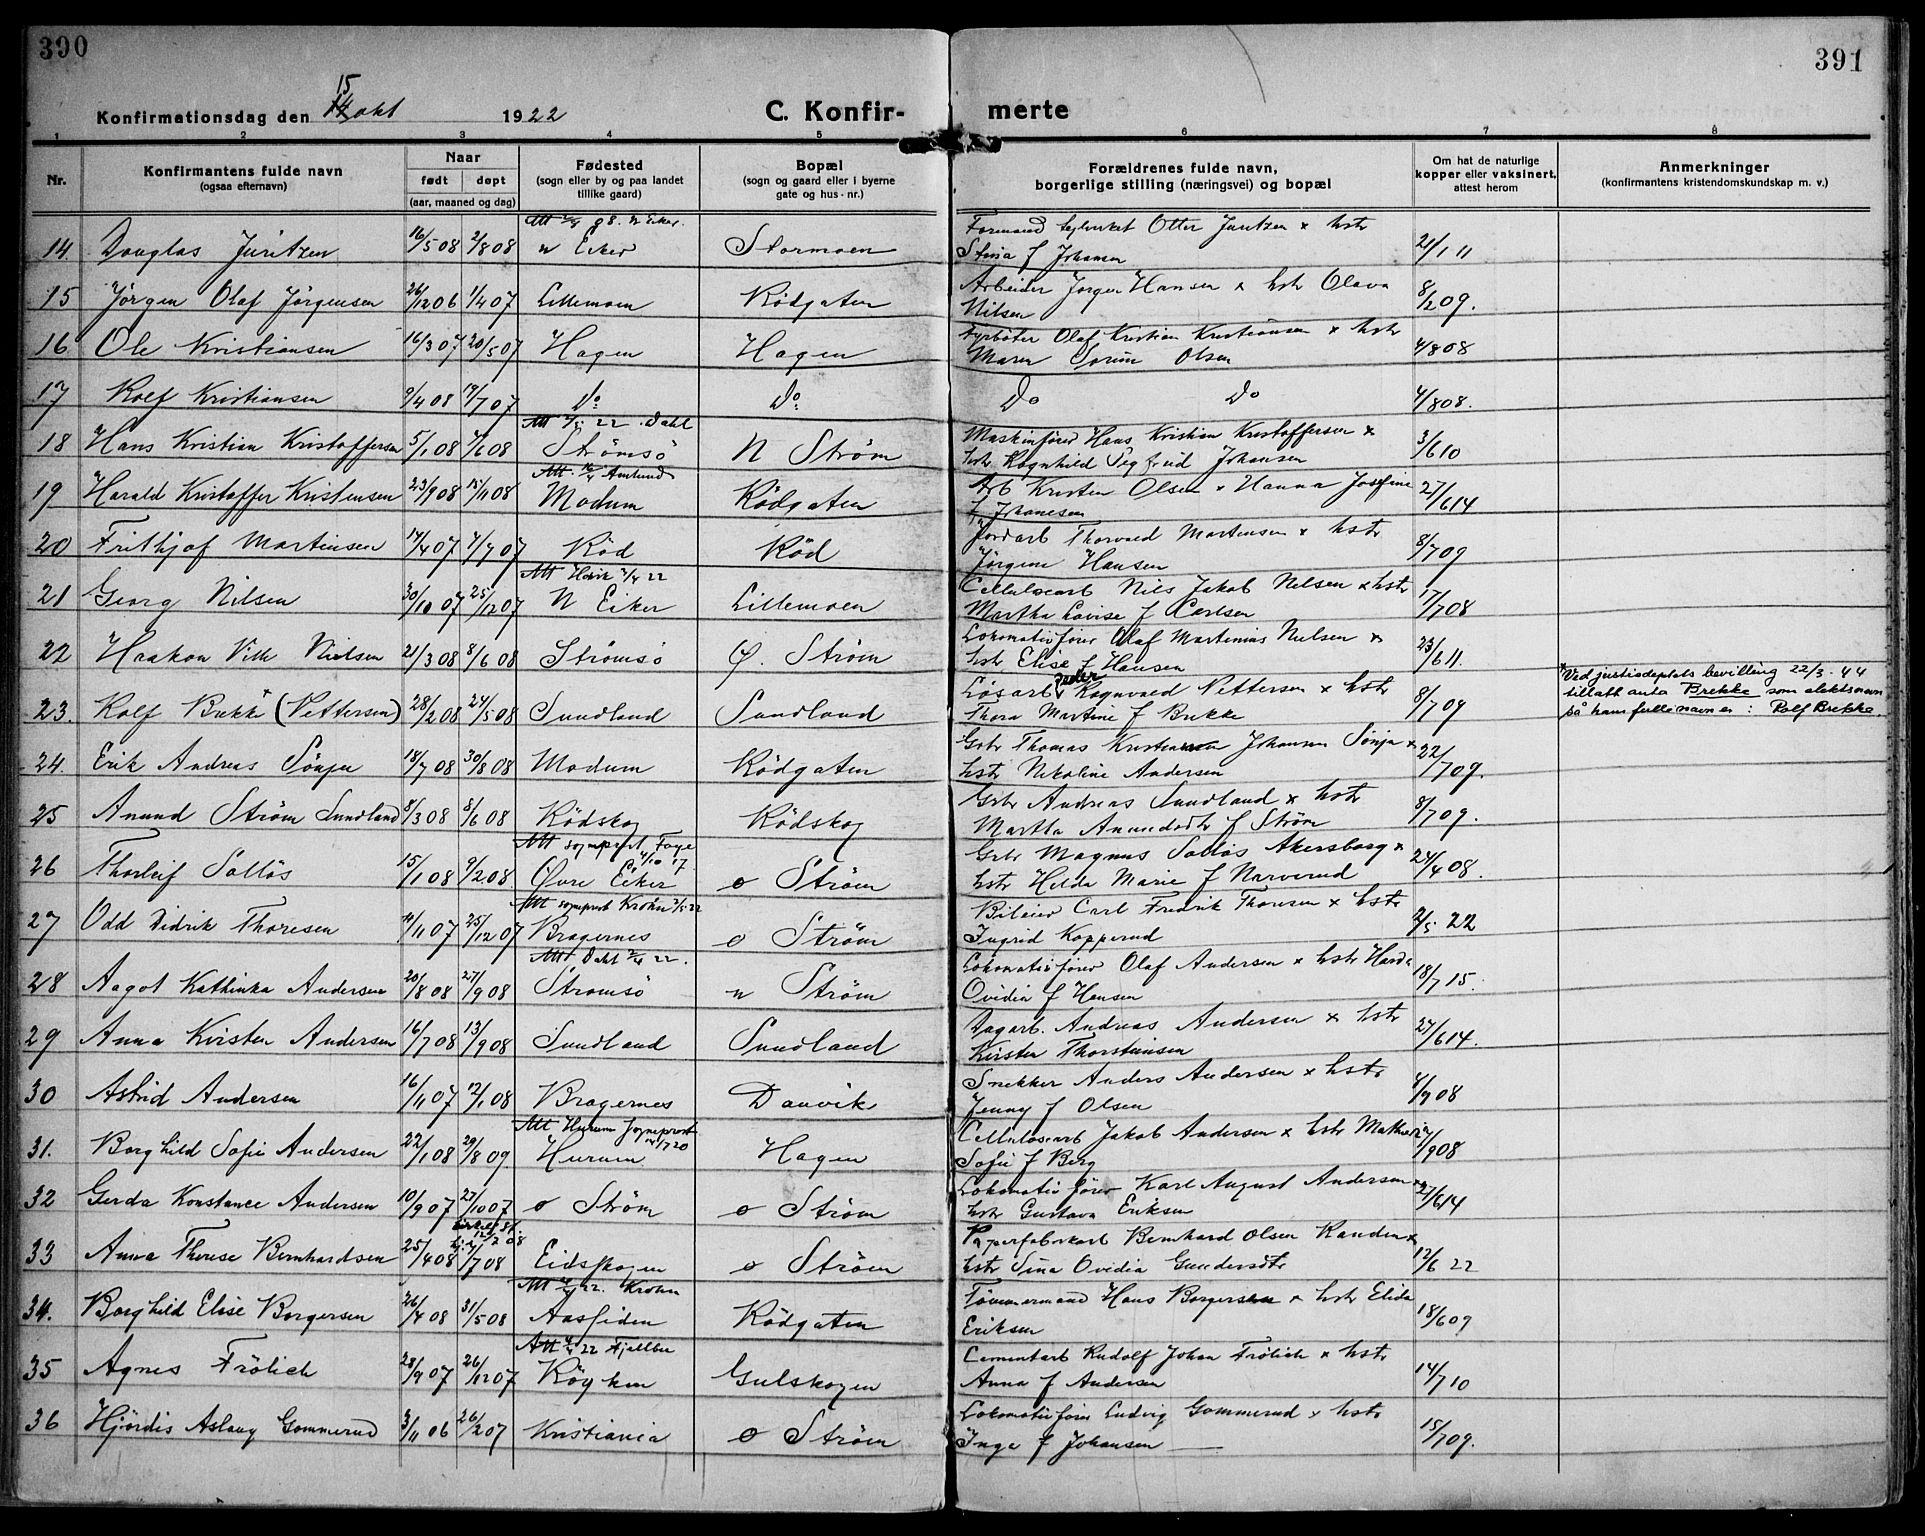 390
391
15
14 okt
Konfirmationsdag den 1922 C. Konfir- merte
1 2 3 4 5 6 7 8
Nr. Konfirmantens fulde navn (ogsaa efternavn) Naar født døpt (aar, maaned og dag) Fødested (sogn eller by og paa landet tillike gaard) Bopæl (sogn og gaard eller i byerne gate og hus-nr.) Forældrenes fulde navn, borgerlige stilling (næringsvei) og bopæl Om hat de naturlige kopper eller vaksinert, attest herom Anmerkninger (konfirmantens kristendomskundskap m. v.)
14. Douglas Juritzen 16/5 08 2/8 08 n Eiker Stormoen Stina f Johansen 21/1 11
15 Jørgen Olaf Jørgensen 26/12 06 1/4 07 Lillemoen Rødgaten Arbeider Jørgen Hansen x hstr Olava
Nilsen 8/2 09.
16 Ole Kristiansen 16/3 07 20/5 07 Hagen Hagen Fyrbøter Olaf Kristian Kristiansen x hstr
Maren Sorine Olsen 4/8 08
17 Rolf Kristiansen 9/4 08 19/7 07 Do Do Do Do 4/8 08.
Att 22. Dahl
18 Hans Kristian Kristoffersen 5/1 08 7/6 08 Strømsø N Strøm Maskinfører Hans Kristian Kristoffersen x
hstr Ragnhild Sigfrid Johansen 3/6 10
19 Harald Kristoffer Kristensen 23/9 08 15/11 08 Modum Rødgaten Arb Kristen Olsen x Hanna Josefine
f Johanesen 27/6 14
20 Frithjof Martinsen 14/4 07 7/7 07 Rød Rød Jordarb Thorvald Martensen x hstr
Jørgine Hansen 8/7 09
21 Georg Nilsen 30/10 07 25/12 07 N Eiker Lillemoen Cellulosearb Nils Jakob Nilsen x hstr
Martha Lovise f Carlsen 17/7 08
22 Haakon Vilh Nielsen 21/3 08 8/6 08 Strømsø Ø. Strøm Lokomotivfører Olaf Martinius Nielsen x
hstr Elise f Hansen 23/6 11.
23. Rolf Brekke (Pettersen) 28/2 08 24/5 08 Sundland Sundland Løsarb Peder Ragnvald Pettersen x hstr
Thora Martine f Brekke 8/7 09
Ved justisdeptets bevilling 22/3-44
tillatt anta Brekke som slektsnavn
så hans fulle navn er: Rolf Brekke.
24. Erik Andreas Sønju 18/7 08 30/8 08 Modum Rødgaten Gbr Thomas Kristiansen Johansen Sønju x
hstr Nikoline Andersen 22/7 09.
25 Anund Strøm Sundland 8/3 08 8/6 08 Rødskog Rødskog Gbr Andreas Sundland x hstr
Martha Anundsdtr f Strøm 8/7 09.
26 Thorleif Solløs 15/1 08 9/2 08 Øvre Eiker ø Strøm Gbr Magnus Solløs Akersborg x
hstr Hilda Marie f Narverud 24/4 08.
Att sogneprst Krohn 2/5 22
27 Odd Didrik Thoresen 11/11 07 25/12 07 Bragernes ø Strøm Bileier Carl Fredrik Thoresen x hstr
Ingrid Kopperud 2/5 22
28 Aagot Kathinka Andersen 20/8 08 27/9 08 Strømsø n Strøm Lokomotivfører Olaf Andersen x hstr
Ovidia f Hansen 18/7 15.
29 Anna Kirsten Andersen 16/7 08 13/9 08 Sundland Sundland Dagarb. Andreas Andersen x hstr
Kirsten Thorsteinsen 27/6 14.
30 Astrid Andersen 16/11 07 12/1 08 Bragernes Danvik Snekker Anders Andersen x hstr
Jenny f Olsen 4/9 08
Att Hurum sogneprest
31. Borghild Sofie Andersen 22/1 08 29/8 09. Hurum Hagen Cellulosearb Jakob Andersen x hstr
Sofie f Berg
32 Gerda Konstance Andersen 10/9 07 27/10 07 ø Strøm ø Strøm Lokomotivfører Karl August Andersen x
hstr Gustava Eriksen 27/6 14
33 Anna Therese Bernhardsen 25/4 08 7/7 08 Eidskogen ø Strøm Paperfabarb Bernhard Olsen Randen x
hstr Sina Ovidia Gundersdtr 12/6 22
34. Borghild Elise Borgersen 26/4 08 31/5 08 Aassiden Rødgaten Tømmermand Hans Borgersen x hstr Elida
Eriksen 18/6 09
35 Agnes Frölich 28/9 07 26/12 07 Røyken Gulskogen Cementarb Rudolf Johan Frölich x hstr
Anna f Andersen 14/7 10
36 Hjørdis Aslaug Gommerud 3/11 06 26/2 07 Kristiania ø Strøm Lokomotivfører Ludvig Gommerud x hstr
Inga f Johansen 15/7 09.